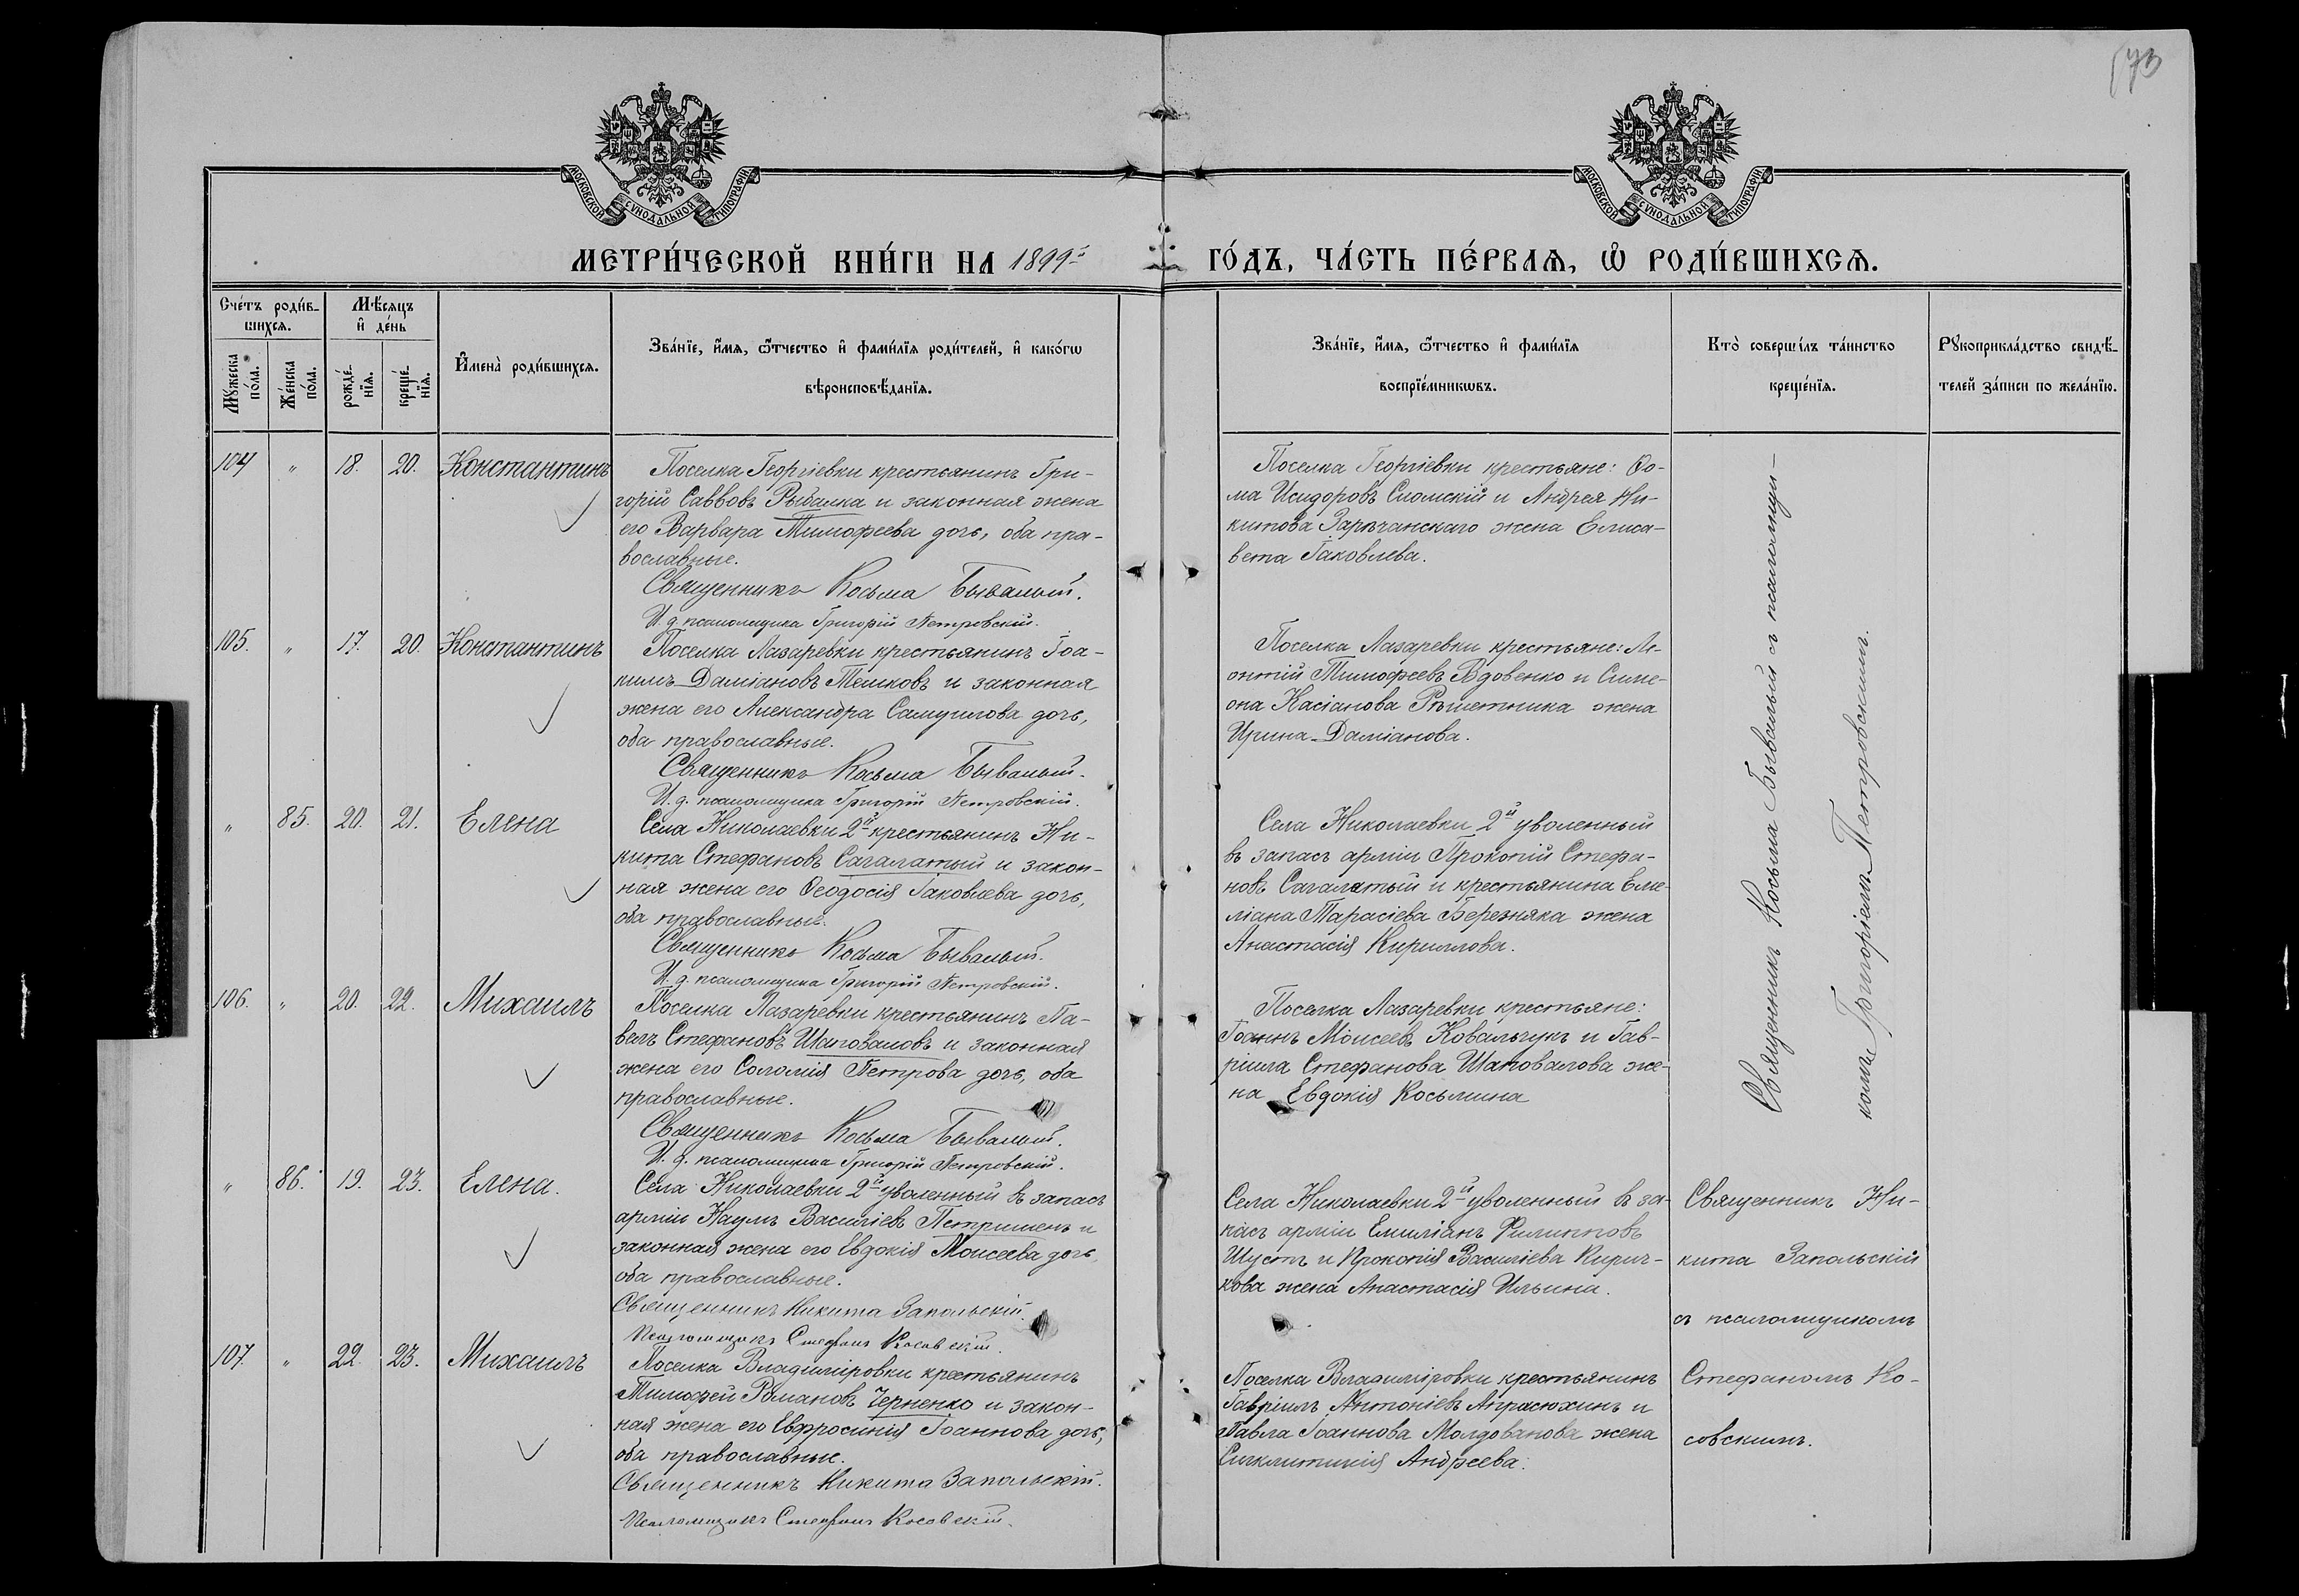 73
МОСКОВСКОЙ СУНОДАЛЬНОЙ ТИПОГРАФІИ
МОСКОВСКОЙ СУНОДАЛЬНОЙ ТИПОГРАФІИ
МЕТРИ́ЧЕСКОЙ КНИ́ГИ НА 1899й
ГО́ДЪ, ЧА́СТЬ ПЕ́РВАѦ, Ѽ РОДИ́ВШИХСѦ.
Сче́тъ роди́в-
шихсѧ.
Мꙋжеска по́ла.
Же́нска по́ла.
Мѣ́сѧцъ
и҆ де́нь
рожде́-
нїѧ.
креще́-
нїѧ.
И҆мена̀ роди́вшихсѧ.
Зва́нїе, и҆́мѧ, ѻ҆́тчество и҆ фами́лїѧ роди́телей, и҆ како́гѡ
вѣроисповѣ́данїѧ.
Зва́нїе, и҆́мѧ, ѻ҆́тчество и҆ фами́лїѧ
воспрїе́мникѡвъ.
Кто̀ соверши́лъ та́инство
креще́нїѧ.
Рꙋкоприкла́дство свидѣ́-
телей за́писи по жела́нїю.
104 " 18. 20. Константинъ
Поселка Георгіевки крестьянинъ Гри-
горій Саввовъ Рыбалка и законная жена
его Варвара Тимофеева дочь, оба пра-
вославные.
Священникъ Косьма Бывалый.
И. д. псаломщика Григорій Петровскій.
Поселка Георгіевки крестьяне: Ѳо-
ма Исидоровъ Сломскій и Андрея Ни-
китова Зарѣчанскаго жена Елиса-
вета Іаковлева.
105. " 17. 20. Константинъ
Поселка Лазаревки крестьянинъ Іоа-
кимъ Даміановъ Тешковъ и законная
жена его Александра Самуилова дочь,
оба православные.
Священникъ Косьма Бывалый.
И. д. псаломщика Григорій Петровскій.
Поселка Лазаревки крестьяне: Ле-
онтій Тимофеевъ Вдовенко и Симе-
она Касіанова Рѣшетника жена
Ирина Даміанова.
" 85. 20. 21. Елена
Села Николаевки 2й крестьянинъ Ни-
кита Стефановъ Сагалатый и закон-
ная жена его Ѳеодосія Іаковлева дочь,
оба православные.
Священникъ Косьма Бывалый.
И. д. псаломщика Григорій Петровскій.
Села Николаевки 2й уволенный
въ запасъ арміи Прокопій Стефа-
новъ Сагалатый и крестьянина Еми-
ліана Тарасіева Березняка жена
Анастасія Кириллова.
106. " 20. 22. Михаилъ
Поселка Лазаревки крестьянинъ Па-
велъ Стефановъ Шаповаловъ и законная
жена его Соломія Петрова дочь, оба
православные.
Священникъ Косьма Бывалый.
И. д. псаломщика Григорій Петровскій.
Поселка Лазаревки крестьяне:
Іоаннъ Моисеевъ Ковальчукъ и Гав-
ріила Стефанова Шаповалова же-
на Евдокія Косьмина
Священникъ Косьма Бывалый съ псаломщи-
комъ Григоріемъ Петровскимъ.
" 86. 19. 23. Елена.
Села Николаевки 2й уволенный въ запасъ
арміи Наумъ Василіевъ Петришенъ и
законная жена его Евдокія Моисеева дочь,
оба православные.
Священникъ Никита Запольскій.
Псаломщикъ Стефанъ Косовскій.
Села Николаевки 2й уволенный въ за-
пасъ арміи Емиліанъ Филипповъ
Шустъ и Прокопія Василіева Кирич-
кова жена Анастасія Ильина.
Священникъ Ни-
кита Запольскій
съ псаломщикомъ
Стефаномъ Ко-
совскимъ.
107. " 22. 23. Михаилъ
Поселка Владиміровки крестьянинъ
Тимофей Романовъ Черненко и закон-
ная жена его Евфросинія Іоаннова дочь,
оба православные.
Священникъ Никита Запольскій.
Псаломщикъ Стефанъ Косовскій.
Поселка Владиміровки крестьянинъ
Гавріилъ Антоніевъ Апрасюхинъ и
Павла Іоаннова Молдованова жена
Синклитикія Андреева.